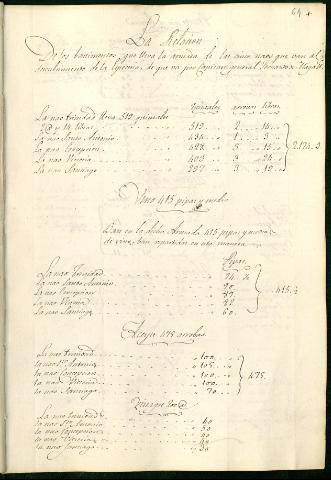 64
La Relacion
De los bastimentos, que lleva la armada de las cinco naos que van al
descubrimiento de la Especeria, de que va por Capitan general Fernando de Magall
quintales arrovas libras
La nao trinidad lleva 513 quintales
2 @ y 14 libras 513 .. 2 .. 14 ..
La nao Santo Antonio
La nao Concepcion
La nao Victoria 403 .. 3 .. 24 ..
La nao Santiago 297 .. 3 .. 19 ..
2.174.3
Vino 415 pipas y media
Van en la dicha Armada 415 pipas y media
de vino, van repartidas en esta manera
Pipas
La nao Trinidad
La nao Santo Antonio 90
La nao Concepcion
La nao Victoria
La nao Santiago 60
415.½
Aceyte 475 arrobas
La nao trinidad 100
La nao Sto Antonio 105
La nao Concepcion 100
La nao Victoria 100
La nao Santiago 70
475
Vinagre 200 @
La nao trinidad 40
La nao Sto Antonio 50
La nao Concepcion 40
La nao Victoria 40
La nao Santiago 30